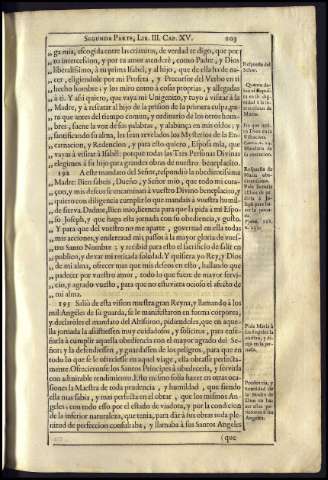 SEGUNDA PARTE, LIB. III. CAP. XV. 203
„ ga mia, escogida entre las criaturas, de verdad te digo, que por
„ tu intercession, y por tu amor atenderè, como Padre, y Dios
„ liberalissimo, à tu prima Isabèl, y al hijo, que de ella ha de na-
„ cer, eligiendole por mi Profeta, y Precursor del Verbo en ti
„ hecho hombre; y los miro como à cosas proprias, y allegadas
„ à ti. Y assi quiero, que vaya mi Unigenito, y tuyo à visitar à la
„ Madre, y à rescatar al hijo de la prision de la primera culpa, pa-
„ ra que antes del tiempo comun, y ordinario de los otros hom-
„ bres, suene la voz de sus palabras, y alabança en mis oìdos; y
„ santificando su alma, les sean revelados los Mysterios de la En-
„ carnacion, y Redencion, y para ello quiero, Esposa mia, que
„ vayas à visitar à Isabèl: porque todas las Tres Personas Divinas
„ elegimos à su hijo para grandes obras de nuestro beneplacito.
„ 192 A este mandato del Señor, respondiò la obedientissima
„ Madre: Bien sabeis, Dueño, y Señor mio, que todo mi cora-
„ çon, y mis deseos se encaminan à vuestro Divino beneplacito, y
„ quiero con diligencia cumplir lo que mandais à vuestra humil-
„ de sierva. Dadme, Bien mio, licencia para que la pida à mi Espo-
„ so Joseph, y que haga esta jornada con su obediencia, y gusto.
„ Y para que del vuestro no me aparte, governad en ella todas
„ mis acciones, y endereçad mis passos à la mayor gloria de vues-
„ tro Santo Nombre; y recibid para esto el sacrificio de salir en
„ publico, y dexar mi retirada soledad. Y quisiera yo Rey, y Dios
„ de mi alma, ofrecer mas que mis deseos en esto, hallando que
„ padecer por vuestro amor, todo lo que fuere de mayor servi-
„ cio, y agrado vuestro, para que no estuviera ocioso el afecto de
„ mi alma.
193 Saliò de esta vision nuestra gran Reyna, y llamando à los
mil Angeles de su guarda, se le manifestaron en forma corporea,
y declaròles el mandato del Altissimo, pidiendoles, que en aque-
lla jornada la assistiessen muy cuidadosos, y solicitos, para ense-
ñarla à cumplir aquella obediencia con el mayor agrado del Se-
ñor; y la defendiessen, y guardassen de los peligros, para que en
todo lo que se le ofreciesse en aquel viage, ella obrasse perfecta-
mente. Ofrecieronse los Santos Principes à obedecerla, y servirla
con admirable rendimiento. Esto mismo solia hazer en otras oca-
siones la Maestra de toda prudencia, y humildad, que siendo
ella mas sabia, y mas perfecta en el obrar, que los mismos An-
geles; con todo esso por el estado de viadora, y por la condicion
de la inferior naturaleza, que tenia, para dàr à sus obras toda ple-
nitud de perfeccion consultaba, y llamaba à sus Santos Angeles
(que
Respuesta del
Señor.
Respuesta de
Maria
Pide Maria à
los Angeles la
Prudencia, y
humildad de
la Madre de
Dios en
Angeles.